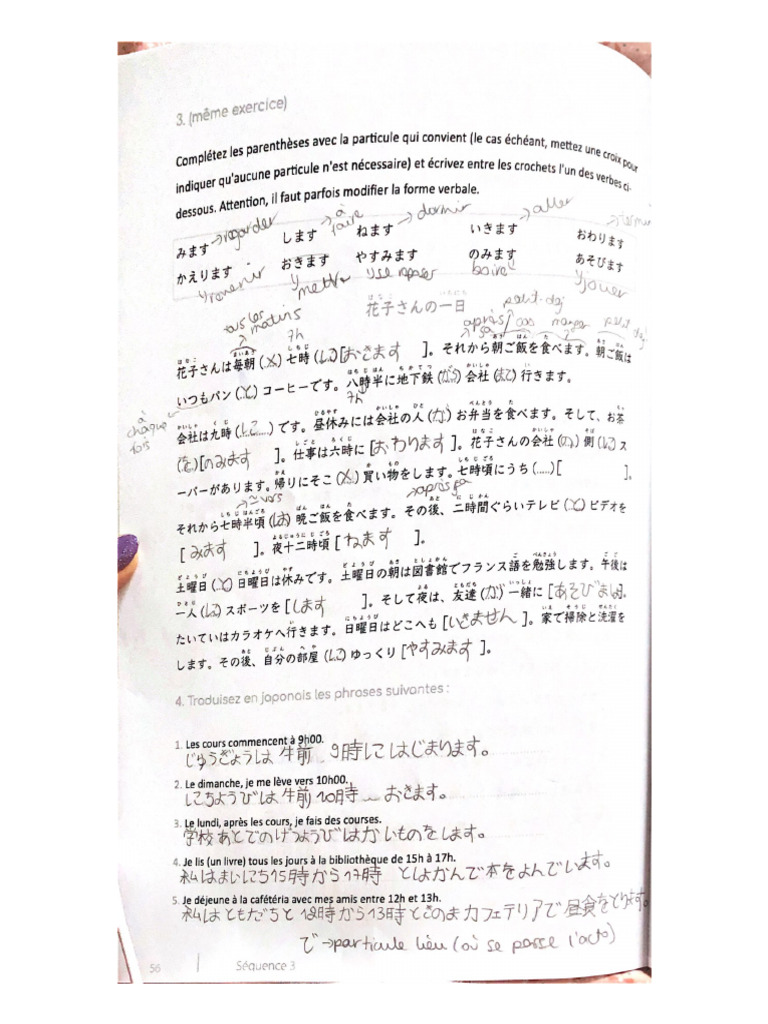 3. (même exercice)
Complétez les parenthèses avec la particule qui convient (le cas échéant, mettez une croix pour
indiquer qu'aucune particule n'est nécessaire) et écrivez entre les crochets l'un des verbes ci-
dessous. Attention, il faut parfois modifier la forme verbale.
→regarder → à faire → dormir → aller
みます します ねます いきます おわります
かえります おきます やすみます のみます あそびます
revenir mettre se reposer boire jouer
花子さんの一日
tous les matins 7h après ça petit-dej manger
花子さんは毎朝 (×) 七時 (に) [おきます ]。それから朝ご飯を食べます。朝ご飯は
いつもパン (と) コーヒーです。八時半に地下鉄 (から) 会社 (まで) 行きます。
à chaque fois 7h
会社は九時 (に.....) です。昼休みには会社の人 (が) お弁当を食べます。そして、お茶
(を) [のみます ]。仕事は六時に [おわります ]。花子さんの会社 (の) 側 (に) ス
ーパーがあります。帰りにそこ (×) 買い物をします。七時頃にうち (.....) [ ]。
vers →après ça
それから七時半頃 (は) 晩ご飯を食べます。その後、二時間ぐらいテレビ (と) ビデオを
[ みます ]。夜十二時頃 [ ねます ]。
土曜日 (と) 日曜日は休みです。土曜日の朝は図書館でフランス語を勉強します。午後は
一人 (に) スポーツを [します ]。そして夜は、友達 (が) 一緒に [あそびます]。
たいていはカラオケへ行きます。日曜日はどこへも [いきません ]。家で掃除と洗濯を
します。その後、自分の部屋 (に) ゆっくり [やすみます ]。
4. Traduisez en japonais les phrases suivantes :
1. Les cours commencent à 9h00.
じゅうぎょうは午前 9時にはじまります。
2. Le dimanche, je me lève vers 10h00.
にちようびは午前10時 おきます。
3. Le lundi, après les cours, je fais des courses.
学校あとでのげつようびはかいものをします。
4. Je lis (un livre) tous les jours à la bibliothèque de 15h à 17h.
私はまいにち15時から17時 としょかんで本をよんでいます。
5. Je déjeune à la cafétéria avec mes amis entre 12h et 13h.
私はともだちと12時から13時とこのまカフェテリアで昼食をとります。
で→particule lieu (où se passe l'acto)
56 Séquence 3